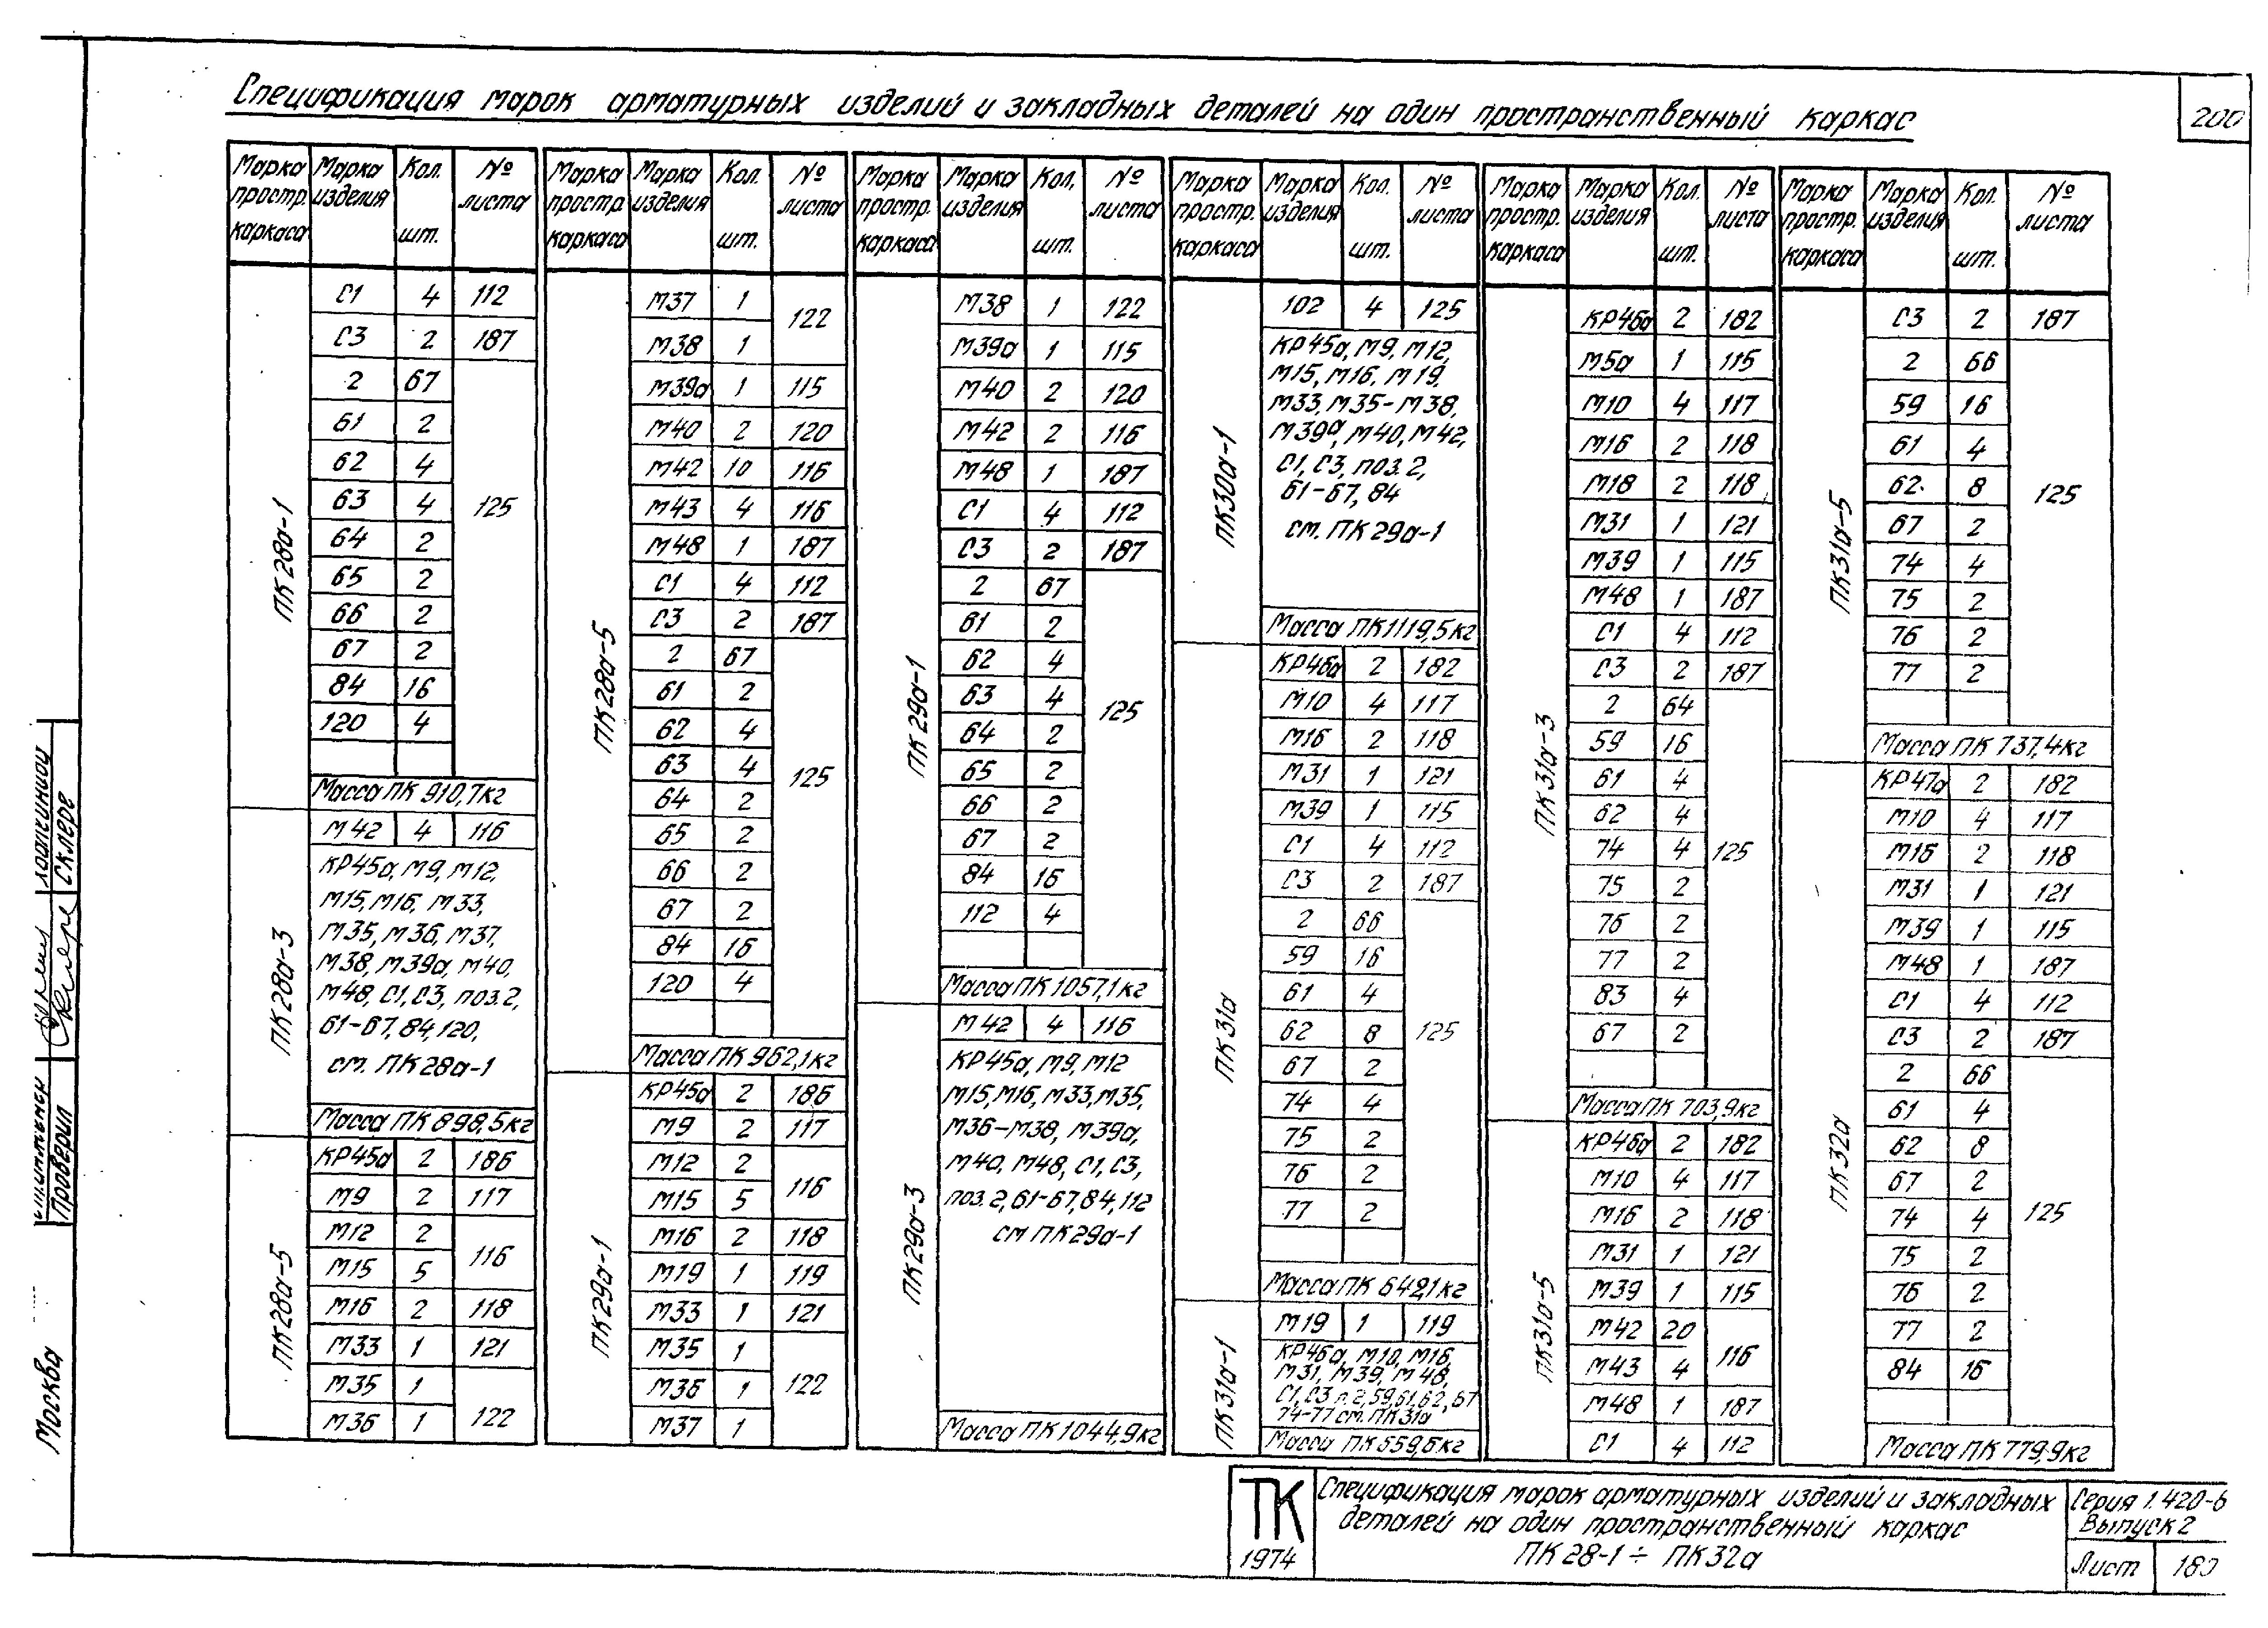 Спецификация марок арматурных изделий и закладных деталей на один пространственный каркас
200
Марка простр. каркаса Марка изделия Кол. шт. № листа
С1 4 112
С3 2 187
2 67
61 2
62 4
63 4
64 2
65 2
66 2
67 2
84 16
120 4
125
ПК28а-1
Масса ПК 910,7кг
М42 4 116
КР45а, М9, М12,
М15, М16, М33,
М35, М36, М37,
М38, М39а, М40,
М48, С1, С3, поз.2,
61-67, 84, 120,
см. ПК28а-1
ПК28а-3
Масса ПК 898,5кг
КР45а 2 186
М9 2 117
М12 2
М15 5
116
М16 2 118
М33 1 121
М35 1
М36 1
122
ПК28а-5
Марка простр. каркаса Марка изделия Кол. шт. № листа
М37 1
М38 1
122
М39а 1 115
М40 2 120
М42 10 116
М43 4 116
М48 1 187
С1 4 112
С3 2 187
2 67
61 2
62 4
63 4
64 2
65 2
66 2
67 2
84 16
120 4
125
ПК28а-5
Масса ПК 962,1кг
КР45а 2 186
М9 2 117
М12 2
М15 5
116
М16 2 118
М19 1 119
М33 1 121
М35 1
М36 1
М37 1
122
ПК29а-1
Марка простр. каркаса Марка изделия Кол. шт. № листа
М38 1 122
М39а 1 115
М40 2 120
М42 2 116
М48 1 187
С1 4 112
С3 2 187
2 67
61 2
62 4
63 4
64 2
65 2
66 2
67 2
84 16
112 4
125
ПК29а-1
Масса ПК 1057,1кг
М42 4 116
КР45а, М9, М12
М15, М16, М33, М35,
М36-М38, М39а,
М40, М48, С1, С3,
поз.2, 61-67, 84, 112
см ПК29а-1
ПК29а-3
Масса ПК 1044,9кг
Марка простр. каркаса Марка изделия Кол. шт. № листа
102 4 125
КР45а, М9, М12,
М15, М16, М19,
М33, М35-М38,
М39а, М40, М42,
С1, С3, поз.2,
61-67, 84
см. ПК29а-1
ПК30а-1
Масса ПК1119,5кг
КР46а 2 182
М10 4 117
М16 2 118
М31 1 121
М39 1 115
С1 4 112
С3 2 187
2 66
59 16
61 4
62 8
67 2
74 4
75 2
76 2
77 2
125
ПК31а
Масса ПК 649,1кг
М19 1 119
КР46а, М10, М16,
М31, М39, М48,
С1, С3 п.2,59,61,62,67
74-77 см. ПК31а
ПК31а-1
Масса ПК 659,6кг
Марка простр. каркаса Марка изделия Кол. шт. № листа
КР46а 2 182
М5а 1 115
М10 4 117
М16 2 118
М18 2 118
М31 1 121
М39 1 115
М48 1 187
С1 4 112
С3 2 187
2 64
59 16
61 4
62 4
74 4
75 2
76 2
77 2
83 4
67 2
125
ПК31а-3
Масса ПК 703,9кг
КР46а 2 182
М10 4 117
М16 2 118
М31 1 121
М39 1 115
М42 20
М43 4
116
М48 1 187
С1 4 112
ПК31а-5
Марка простр. каркаса Марка изделия Кол. шт. № листа
С3 2 187
2 66
59 16
61 4
62 8
67 2
74 4
75 2
76 2
77 2
125
ПК31а-5
Масса ПК 737,4кг
КР47а 2 182
М10 4 117
М16 2 118
М31 1 121
М39 1 115
М48 1 187
С1 4 112
С3 2 187
2 66
61 4
62 8
67 2
74 4
75 2
76 2
77 2
84 16
125
ПК32а
Масса ПК 779,9кг
ТК
1974
Спецификация марок арматурных изделий и закладных
деталей на один пространственный каркас
ПК 28-1 ÷ ПК32а
Серия 1.420-6
Выпуск 2
Лист
Проверил
Скляре
Москва